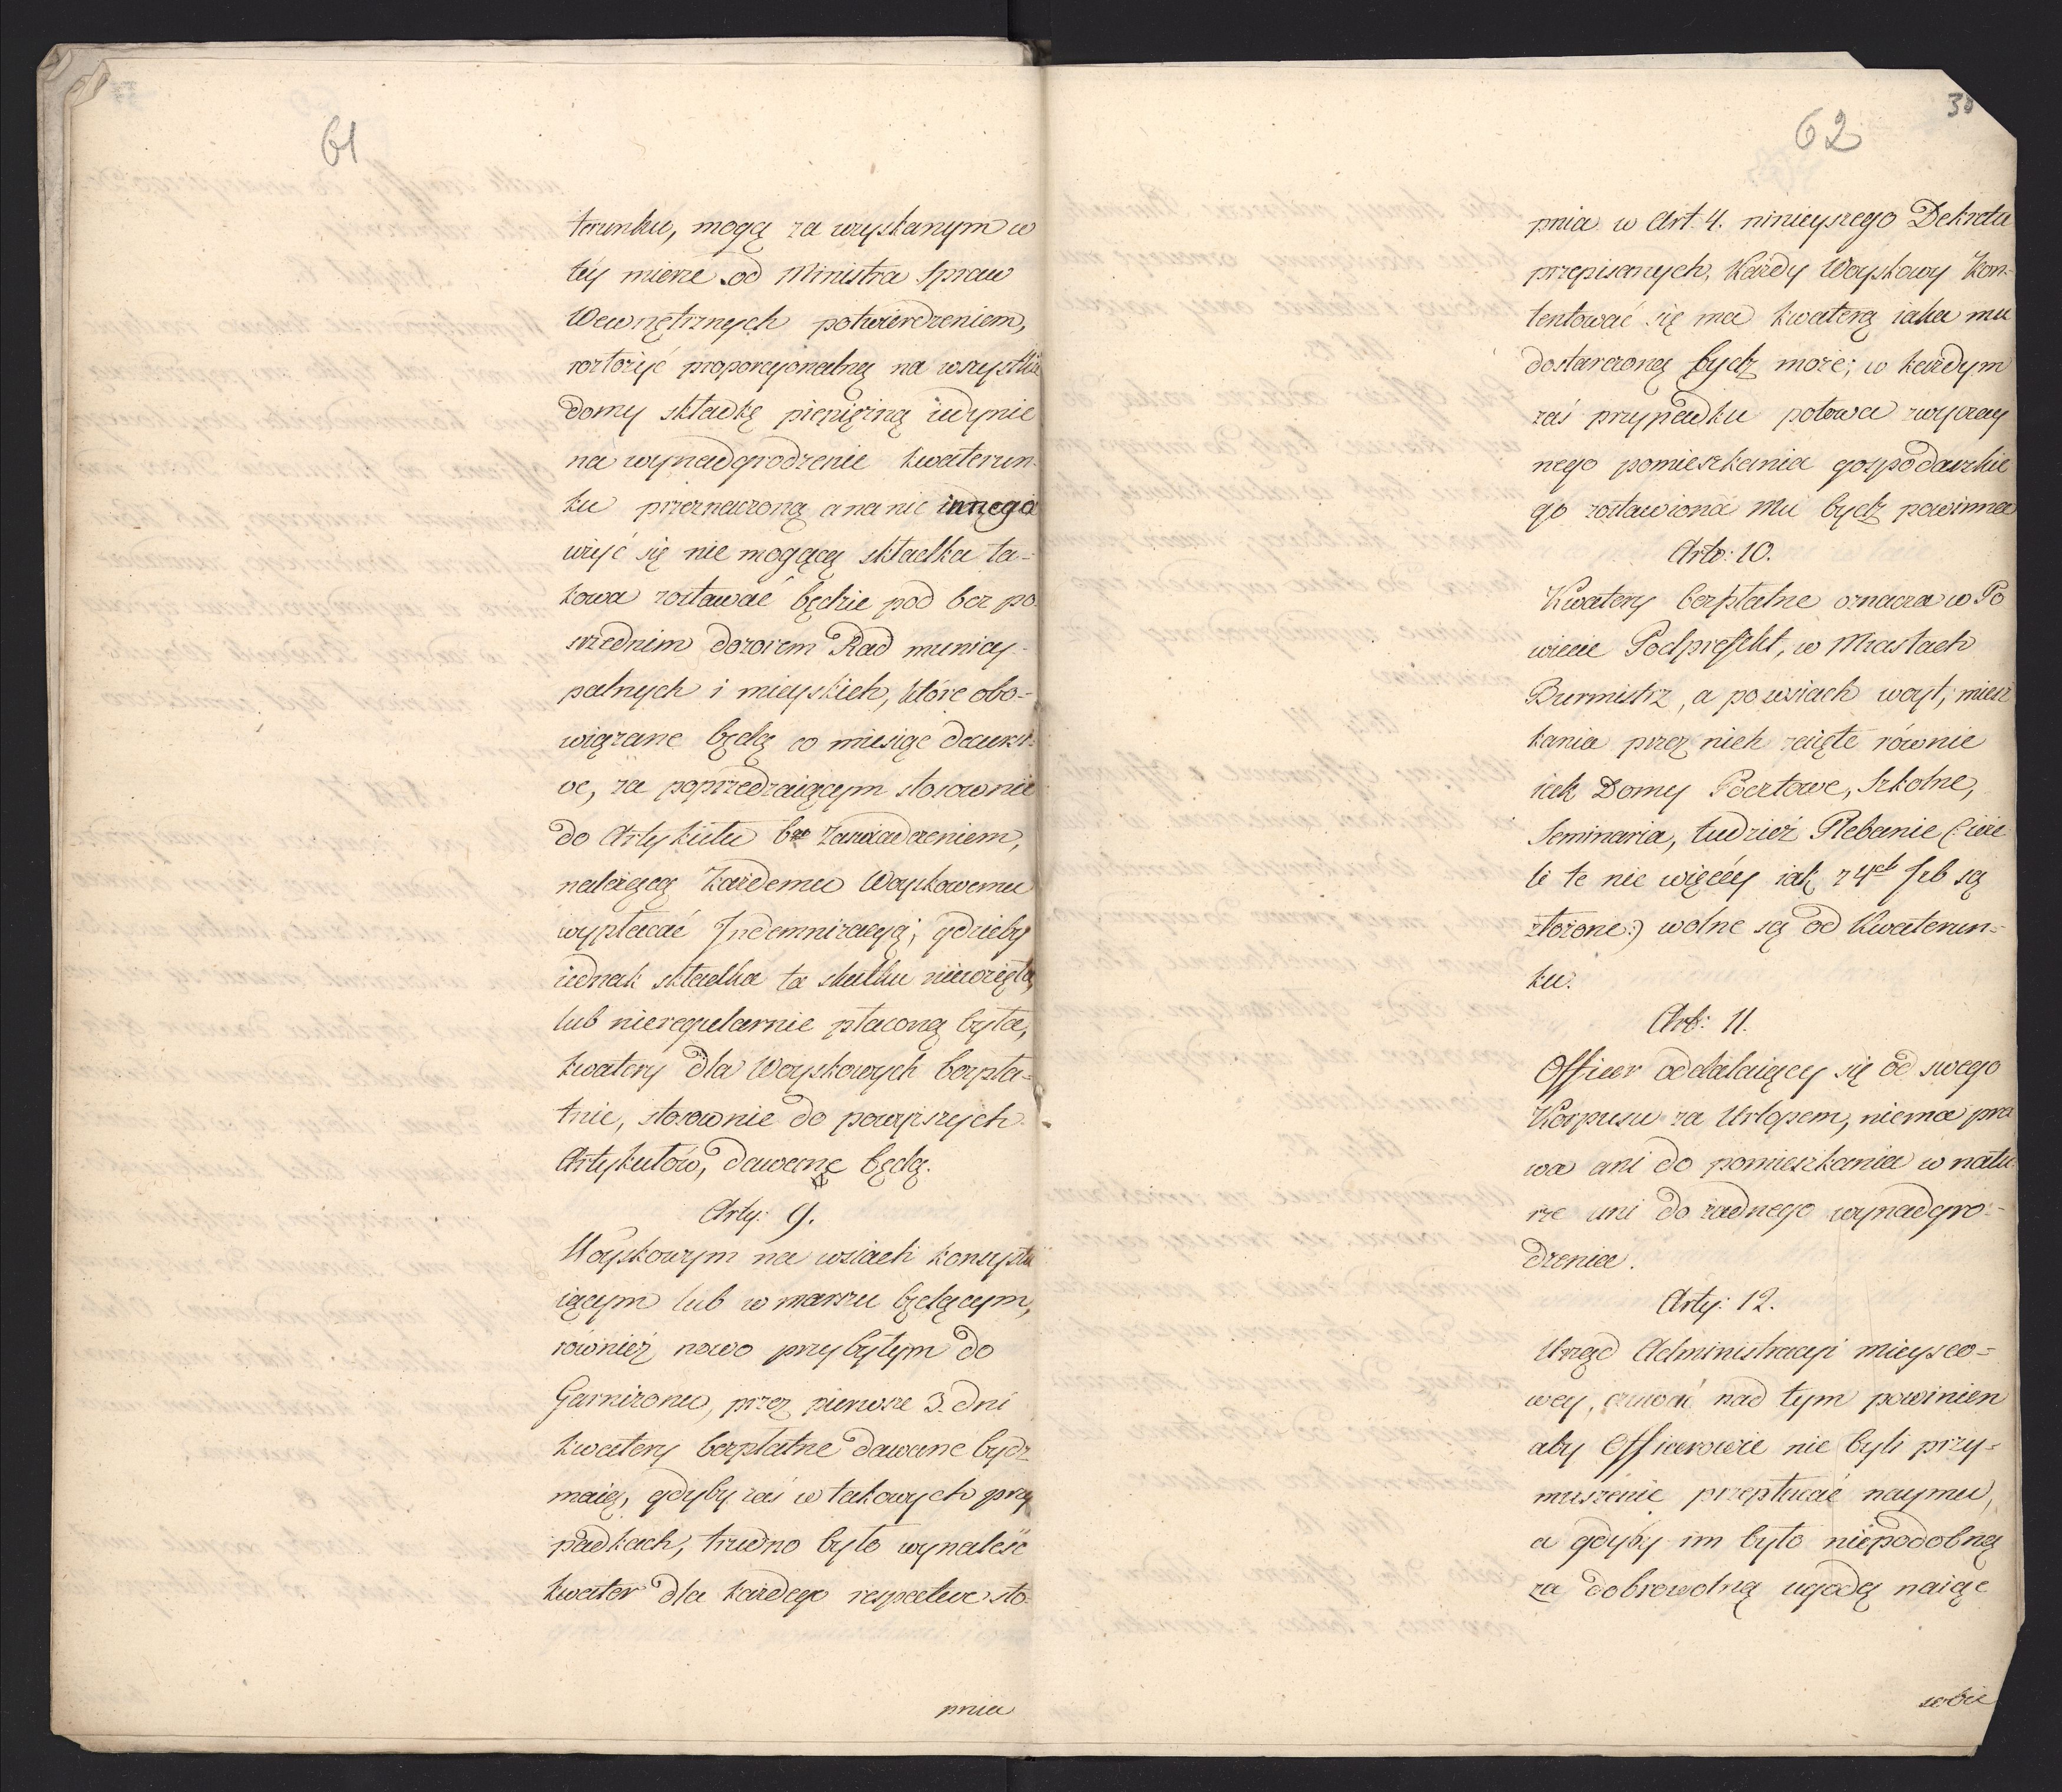 61
terunku, mogą za uzyskanym w
téy mierze od Ministra Spraw
Wewnętrznych potwierdzeniem,
rozłożyć proporcyonalną na wszystkie
domy składkę pieniężną iedynie
na wynadgrodzenie kwaterun-
ku przeznaczoną a na nic innego
użyć się nie mogącą składka ta-
kowa zostawać będzie pod bez po-
srzednim dozorem Rad municy-
palnych i mieyskich, które obo-
wiązane będą co miesiąc
za poprzedzaiącym stosownie
do Artykułu zaświadczeniem,
należącą każdemu Woyskowemu
wypłacać Indemnizacyą; gdzieby
iednak składka ta skutku niewzięła,
lub nieregularnie płaconą była,
kwatery dla Woyskowych bezpła-
tnie, stosownie do powyższych
Artykułów, dawane będą.
Arty: 9.
Woyskowym na wsiach konsystu
iącym lub w marszu będącym,
również nowo przybyłym do
Garnizonu, przez pierwsze 3. dni
kwatery bezpłatne dawane bydz
maią, gdyby zaś w takowych przy
padkach, trudno było wynaleść
kwater dla każdego respective sto-
pnia
62
pnia w Art. 4. ninieyszego Dekretu
przepisanych, Każdy Woyskowy kon-
tentować się ma kwaterą iaka mu
dostarczoną bydz może; w każdym
zaś przypadku połowa zwyczay
nego pomieszkania gospodarskie
go zostawiona mu bydz powinna
Arty: 10.
Kwatery bezpłatne oznacza w Po
wiecie Podprefekt, w Miastach
Burmistrz, a po wsiach woyt; miesz
kania przez nich zaięte równie
iak Domy Pocztowe, Szkolne,
Seminaria, tudzież Plebanie (: ieże
li te nie więcéy iak z 4ech Izb są
złożone:) wolne są od Kwaterun-
ku.
Art: 11.
Officer oddalaiący się od swego
Korpusu za Urlopem, niema pra
wa ani do pomieszkania w natu
rze ani do żadnego wynadgro-
dzenia.
Arty: 12.
Urząd Administracyi mieysco-
wey, czuwać nad tym powinien
aby Officerowie nie byli przy-
muszenie przepłacać naymu,
a gdyby im było niepodobną
za dobrowolną ugodą naiąć
sobie